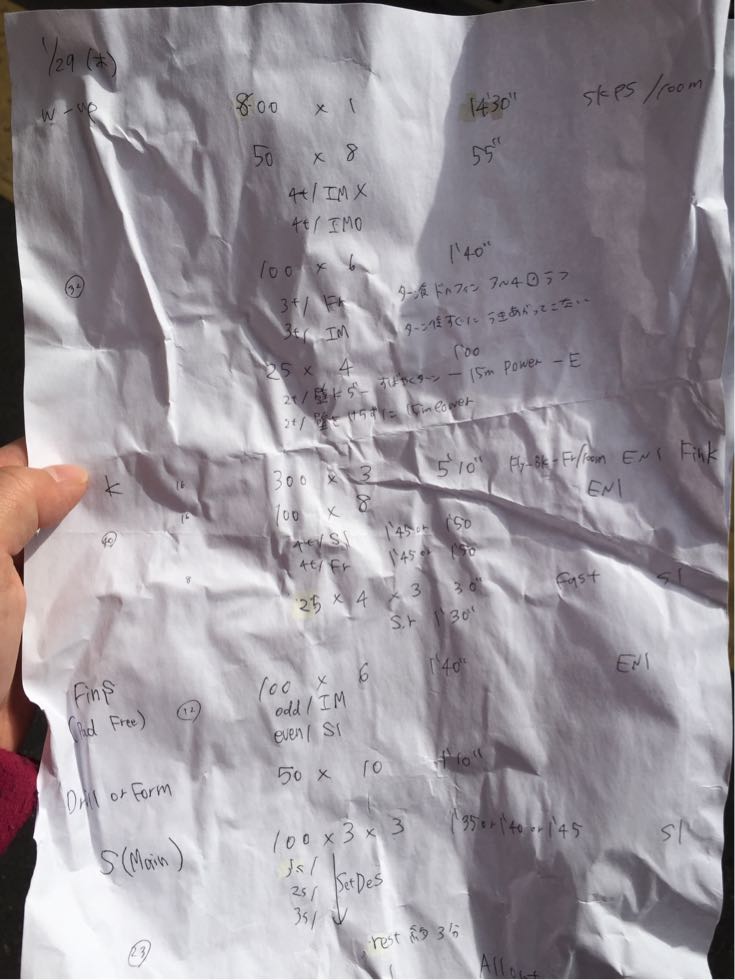 1/29 (木)
W-up 800 x 1 14'30" SKPS/100m
50 x 8 55"
4t/ IM X
4t/ IMO
100 x 6 1'40"
32 3t/ Fr ターン後ドルフィン 3〜4回うつ
3t/ IM ターン後すぐに うきあがってこない
25 x 4 1'00
2t/ 壁 すばやくターン — 15m Power — E
2t/ 壁をけらずに 15m Power
K 16 300 x 3 5'10" Fly-Bk-Fr/100m EN1 Fink
16 100 x 8 EN1
40 4t/ S1 1'45 or 1'50
4t/ Fr 1'45 or 1'50
8 25 x 4 x 3 30" Fast S1
S.r 1'30"
Fins 100 x 6 1'40" EN1
(Pad Free) 12 odd/ IM
even/ S1
Drill or Form 50 x 10 1'10"
S(Main) 100 x 3 x 3 1'35 or 1'40 or 1'45 S1
1s/
2s/ SetDes
3s/
23 rest 約3分
Allout